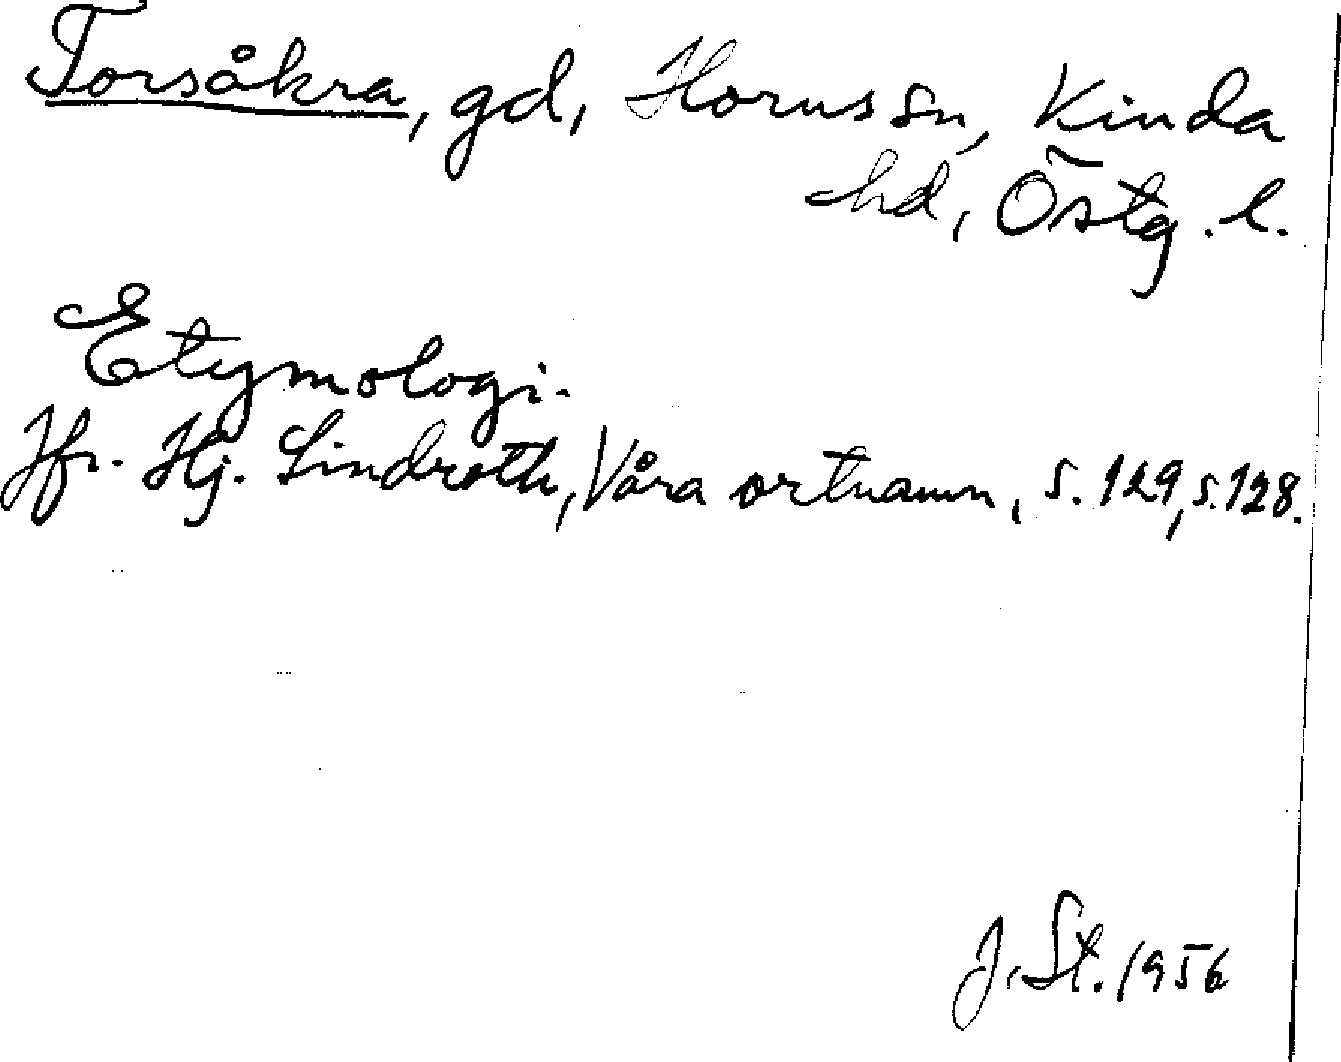 Torsåkra, gd, Horns sn, Kinda
hd, Östg. l.
Etymologi.
Jfr. Hj. Lindroth, Våra ortnamn, s. 129, s. 128.
J. St. 1956